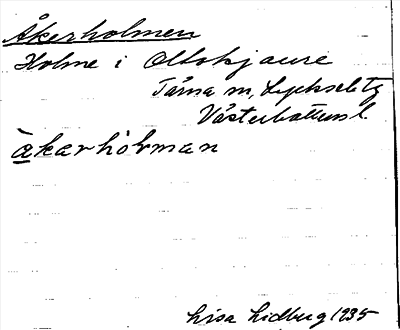 Åkerholmen
Holme i Oltokjaure
Tärna m, Lycksele tg
Västerbottens l.
àkarhòlman
Lisa Lidberg 1935